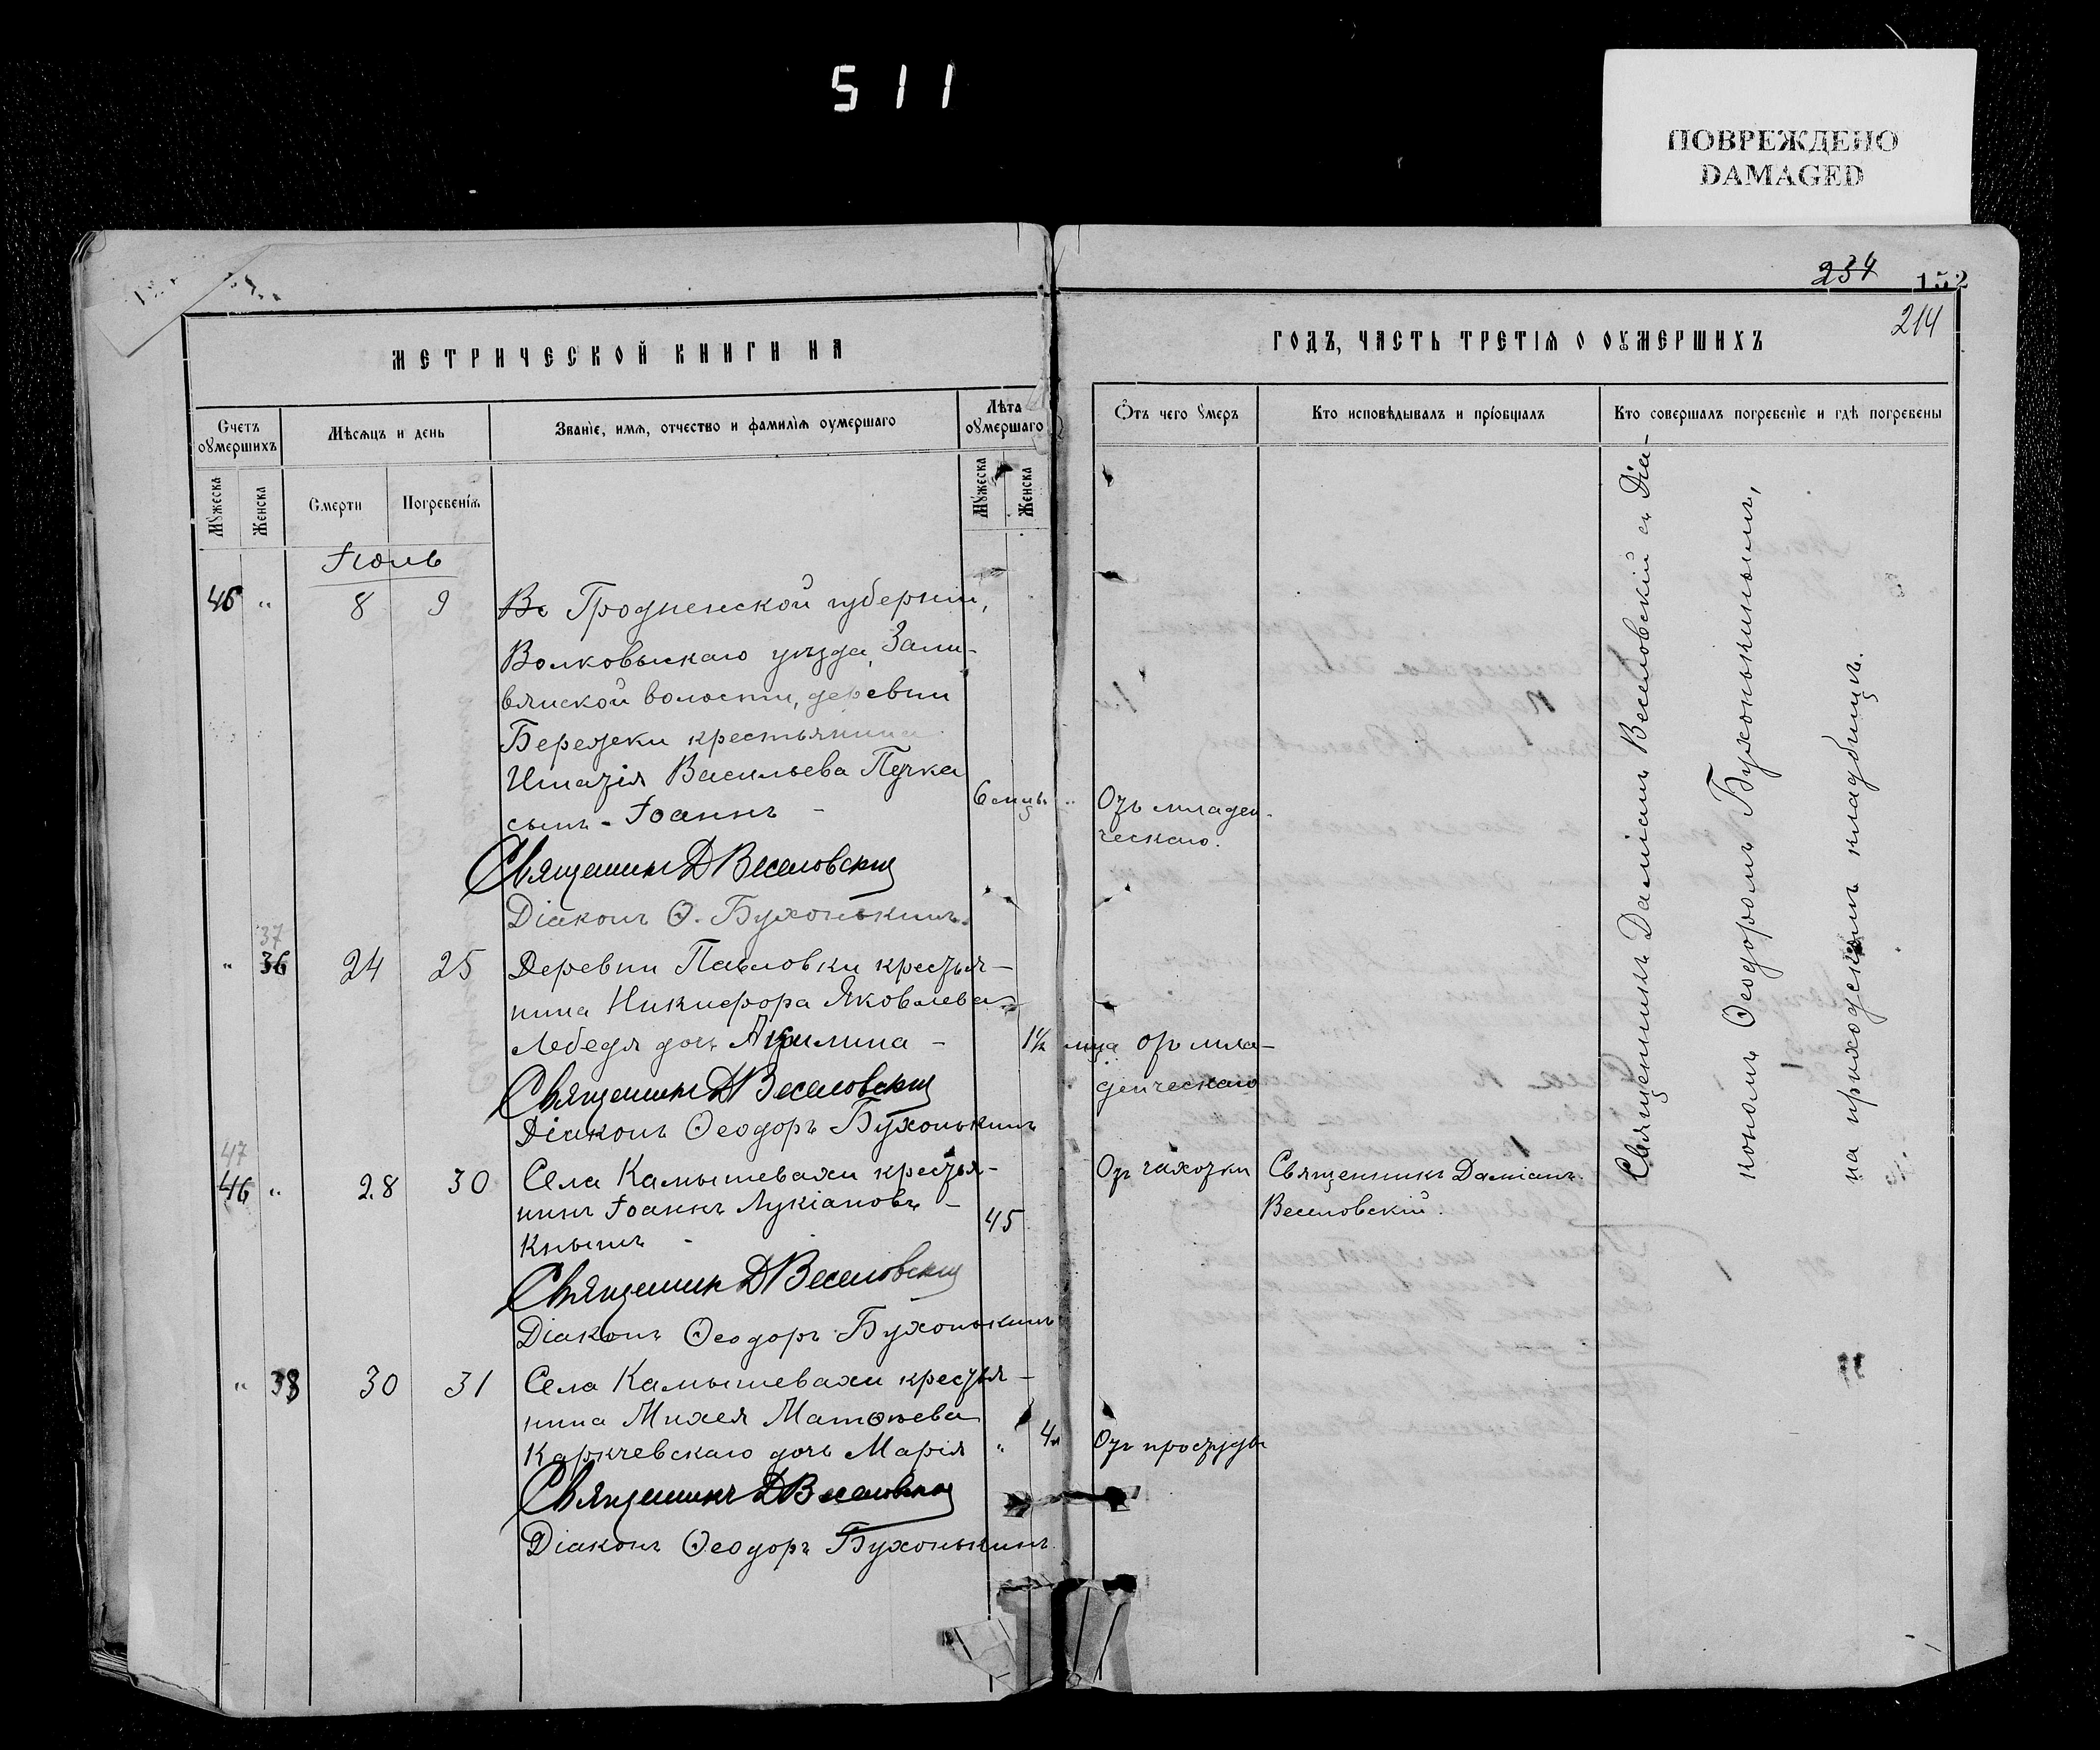 511
ПОВРЕЖДЕНО
DAMAGED
234 152
214
МЕТРИЧЕСКОЙ КНИГИ НА
ГОДЪ, ЧАСТЬ ТРЕТІѦ О ОУМЕРШИХЪ
Счетъ оумершихъ
Мѣсяцъ и день
Званіе, имѧ, отчество и фамиліѧ оумершаго
Лѣта оумершаго
Отъ чего умеръ
Кто исповѣдывалъ и пріобщалъ
Кто совершалъ погребеніе и гдѣ погребены
Мужеска
Женска
Смерти
Погребеніѧ
Мужеска
Женска
Іюль
46 " 8 9 Во Гродненской губерніи,
Волковыскаго уѣзда,
волости, деревни
Бережки крестьянина
Игнатія Васильева Пучка
сынъ - Іоаннъ - 6 мцъ " Отъ младен-
ческаго.
Священникъ Д Веселовскій
Діаконъ Ѳ. Бухонькинъ.
37
" 36 24 25 Деревни Павловки крестья-
нина Никифора Яковлева
Лебедя дочь Акилина - 1½ мца Отъ мла-
денческаго
Священникъ Д Веселовскій
Діаконъ Ѳеодоръ Бухонькинъ
47
46 " 28 30 Села Камышевахи крестья-
нинъ Іоаннъ Лукіановъ -
Кнышъ - 45 Отъ чахотки Священникъ Даміанъ
Веселовскій.
Священникъ Д Веселовскій
Діаконъ Ѳеодоръ Бухонькинъ
" 38 30 31 Села Камышевахи крестья-
нина Михея Матѳеева
Каркчевскаго дочь Марія " 4 Отъ простуды
Священникъ Д Веселовскій
Діаконъ Ѳеодоръ Бухонькинъ
Священникъ Даміанъ Веселовскій съ Діа-
кономъ Ѳеодоромъ Бухонькинымъ,
на приходскомъ кладбищѣ.